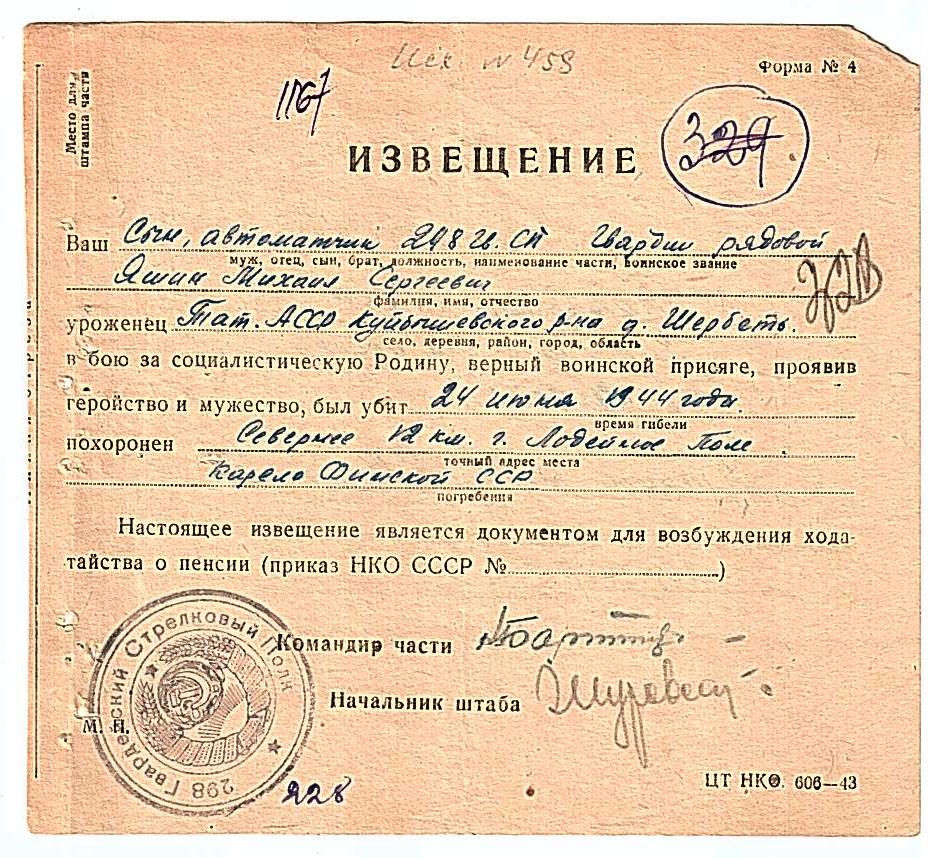 Исх. № 459
Форма № 4
1167
Место для
штампа части
329
ИЗВЕЩЕНИЕ
Ваш Сын, автоматчик 298 Гв. СП Гвардии рядовой
муж, отец, сын, брат, должность, наименование части, воинское звание
Яшин Михаил Сергеевич
фамилия, имя, отчество
уроженец Тат. АССР Куйбышевского р-на д. Щербеть.
село, деревня, район, город, область
в бою за социалистическую Родину, верный воинской присяге, проявив
геройство и мужество, был убит 24 июня 1944 года.
время гибели
похоронен Севернее 12 км. г. Лодейное Поле
точный адрес места
Карело Финской ССР
погребения
Настоящее извещение является документом для возбуждения хода-
тайства о пенсии (приказ НКО СССР № )
Командир части
Начальник штаба
М. П.
298 Гвардейский Стрелковый Полк
228
ЦТ НКО. 606—43